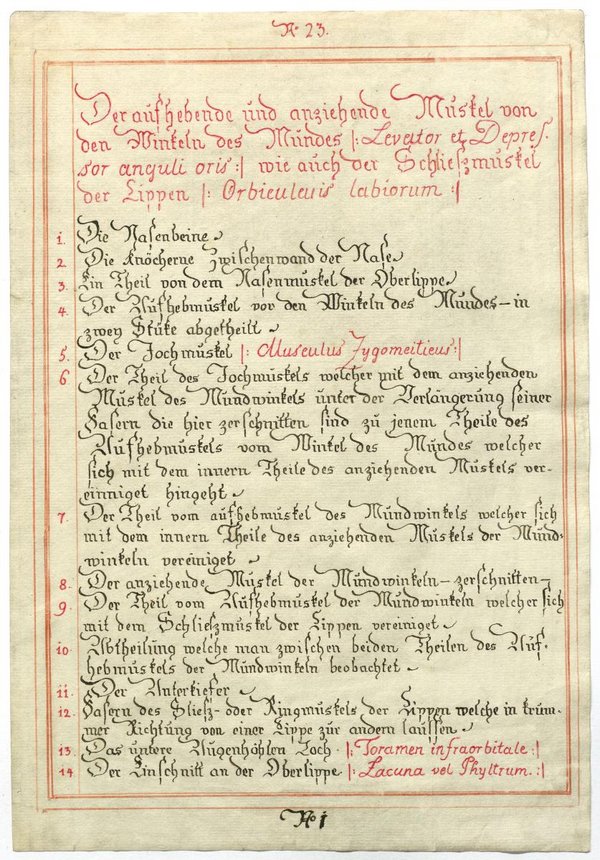 No 23.
Der aufhebende und anziehende Muskel von
den Winkeln des Mundes |: Levator et Depres-
sor anguli oris :| wie auch der Schlieszmuskel
der Lippen |: Orbiculeuis labiorum :|
1. Die Nasenbeine
2. Die knöcherne Zwischenwand der Nase
3. Ein Theil von dem Nasenmuskel der Oberlippe
4. Der Aufhebmuskel vor den Winkeln des Mundes – in
zwey Stüke abgetheilt
5. Der Jochmuskel |: Musculus Zygomeiticus :|
6 Der Theil des Jochmuskels welcher mit dem anziehenden
Muskel des Mundwinkels unter der Verlängerung seiner
Fasern die hier zerschnitten sind zu jenem Theile des
Aufhebmuskels vom Winkel des Mundes welcher
sich mit dem innern Theile des anziehenden Muskels ver-
einniget hingeht
7. Der Theil vom aufhebmuskel des Mundwinkels welcher sich
mit dem innern Theile des anziehenden Muskels der Mund-
winkeln vereiniget
8. Der anziehende Muskel der Mundwinkeln – zerschnitten –
9. Der Theil vom Aufhebmuskel der Mundwinkeln welcher sich
mit dem Schlieszmuskel der Lippen vereiniget
10. Abtheilung welche man zwischen beiden Theilen des Auf-
hebmuskels der Mundwinkeln beobachtet
11. Der Unterkiefer
12. Fasern des Sliesz- oder Ringmuskels der Lippen welche in krum-
mer Richtung von einer Lippe zur andern lauffen
13. Das untere Augenhöhlen Loch |: Foramen infraorbitale :|
14 Der Einschnitt an der Oberlippe |: Lacuna vel Phyltrum. :|
No 1